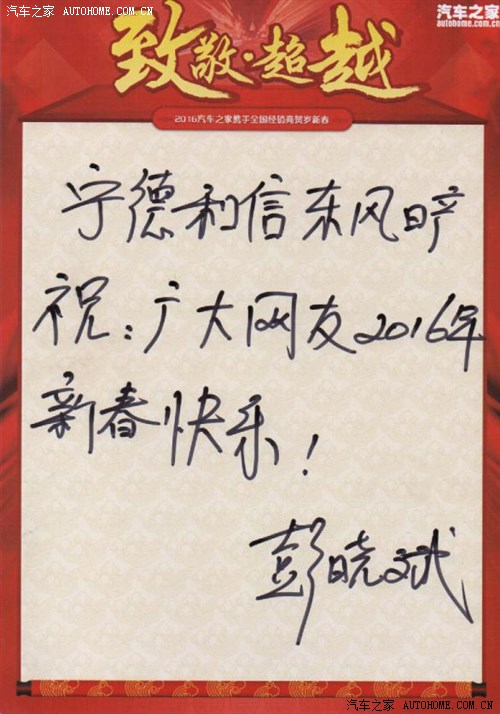 汽车之家 AUTOHOME.COM.CN
汽车之家
autohome.com.cn
致敬·超越
2016汽车之家携手全国经销商贺岁新春
宁德利信东风日产
祝:广大网友2016年
新春快乐!
彭晓斌
汽车之家 AUTOHOME.COM.CN